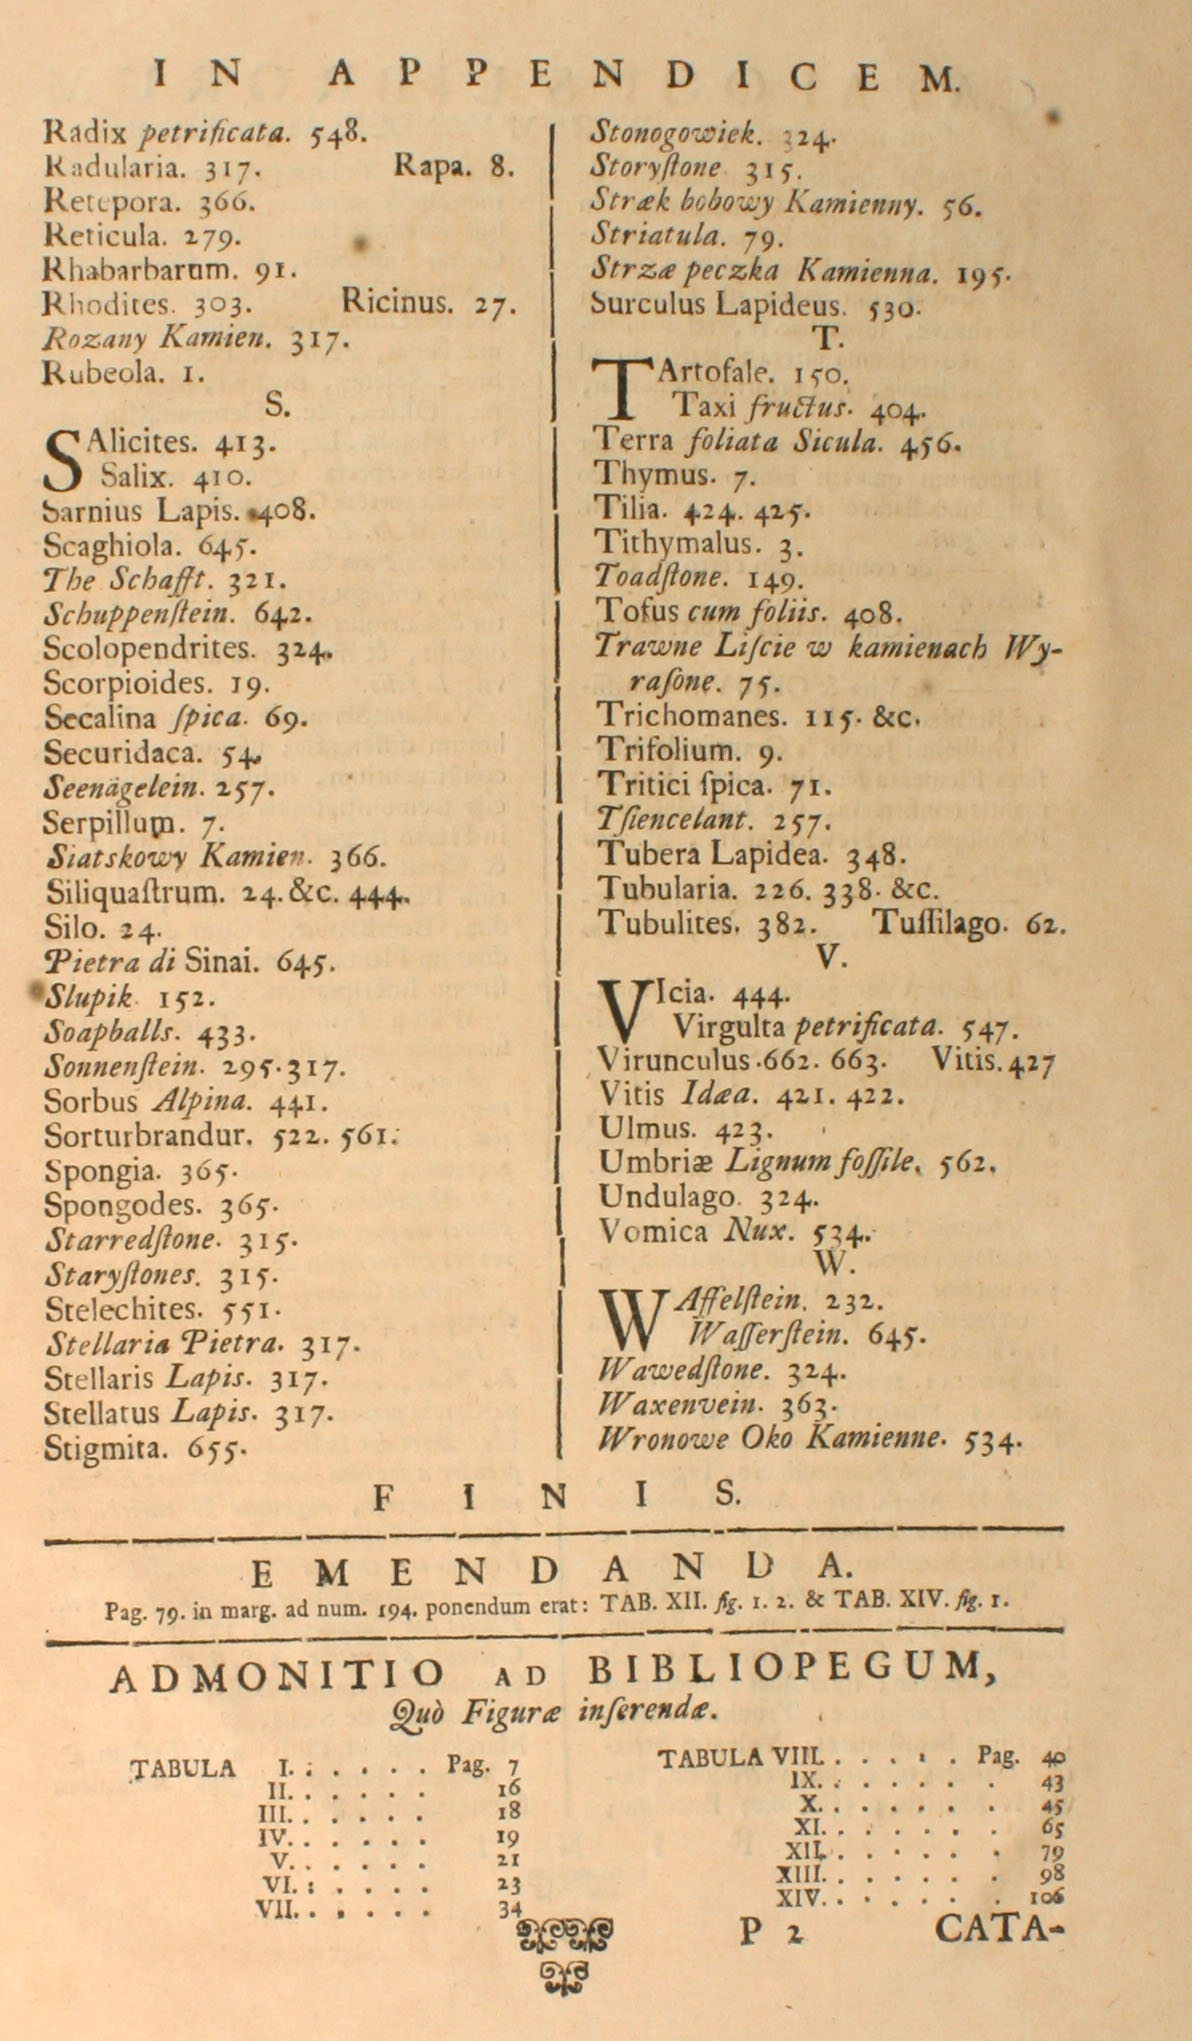 IN APPENDICEM.
Radix petrificata. 548.
Radularia. 317. Rapa. 8.
Retepora. 366.
Reticula. 279.
Rhabarbarum. 91.
Rhodites. 303. Ricinus. 27.
Rozany Kamien. 317.
Rubeola. 1.
S.
SAlicites. 413.
Salix. 410.
Sarnius Lapis. 408.
Scaghiola. 645.
The Schafft. 321.
Schuppenſtein. 642.
Scolopendrites. 324.
Scorpioides. 19.
Secalina ſpica. 69.
Securidaca. 54.
Seenägelein. 257.
Serpillum. 7.
Siatskowy Kamien. 366.
Siliquaſtrum. 24. &c. 444.
Silo. 24.
Pietra di Sinai. 645.
Slupik. 152.
Soapballs. 433.
Sonnenſtein. 295. 317.
Sorbus Alpina. 441.
Sorturbrandur. 522. 561.
Spongia. 365.
Spongodes. 365.
Starredſtone. 315.
Staryſtones. 315.
Stelechites. 551.
Stellaria Pietra. 317.
Stellaris Lapis. 317.
Stellatus Lapis. 317.
Stigmita. 655.
Stonogowiek. 324.
Storyſtone 315.
Stræk bobowy Kamienny. 56.
Striatula. 79.
Strzæ peczka Kamienna. 195.
Surculus Lapideus. 530.
T.
TArtofale. 150.
Taxi fructus. 404.
Terra foliata Sicula. 456.
Thymus. 7.
Tilia. 424. 425.
Tithymalus. 3.
Toadſtone. 149.
Tofus cum foliis. 408.
Trawne Liſcie w kamienach Wy-
raſone. 75.
Trichomanes. 115. &c.
Trifolium. 9.
Tritici ſpica. 71.
Tſiencelant. 257.
Tubera Lapidea. 348.
Tubularia. 226. 338. &c.
Tubulites. 382. Tuſſilago. 62.
V.
VIcia. 444.
Virgulta petrificata. 547.
Virunculus. 662. 663. Vitis. 427
Vitis Idæa. 421. 422.
Ulmus. 423.
Umbriæ Lignum foſſile. 562.
Undulago. 324.
Vomica Nux. 534.
W.
WAffelſtein. 232.
Waſſerſtein. 645.
Wawedſtone. 324.
Waxenvein. 363.
Wronowe Oko Kamienne. 534.
FINIS.
EMENDANDA.
Pag. 79. in marg. ad num. 194. ponendum erat: TAB. XII. fig. 1. 2. & TAB. XIV. fig. 1.
ADMONITIO AD BIBLIOPEGUM,
Quò Figuræ inſerendæ.
TABULA I. . . . . . Pag. 7
II. . . . . . . 16
III. . . . . . . 18
IV. . . . . . . 19
V. . . . . . . 21
VI. . . . . . 23
VII. . . . . . . 34
TABULA VIII. . . . . . Pag. 40
IX. . . . . . . . 43
X. . . . . . . . 45
XI. . . . . . . . 65
XII. . . . . . . . 79
XIII. . . . . . . . 98
XIV. . . . . . . . 106
P 2 CATA-